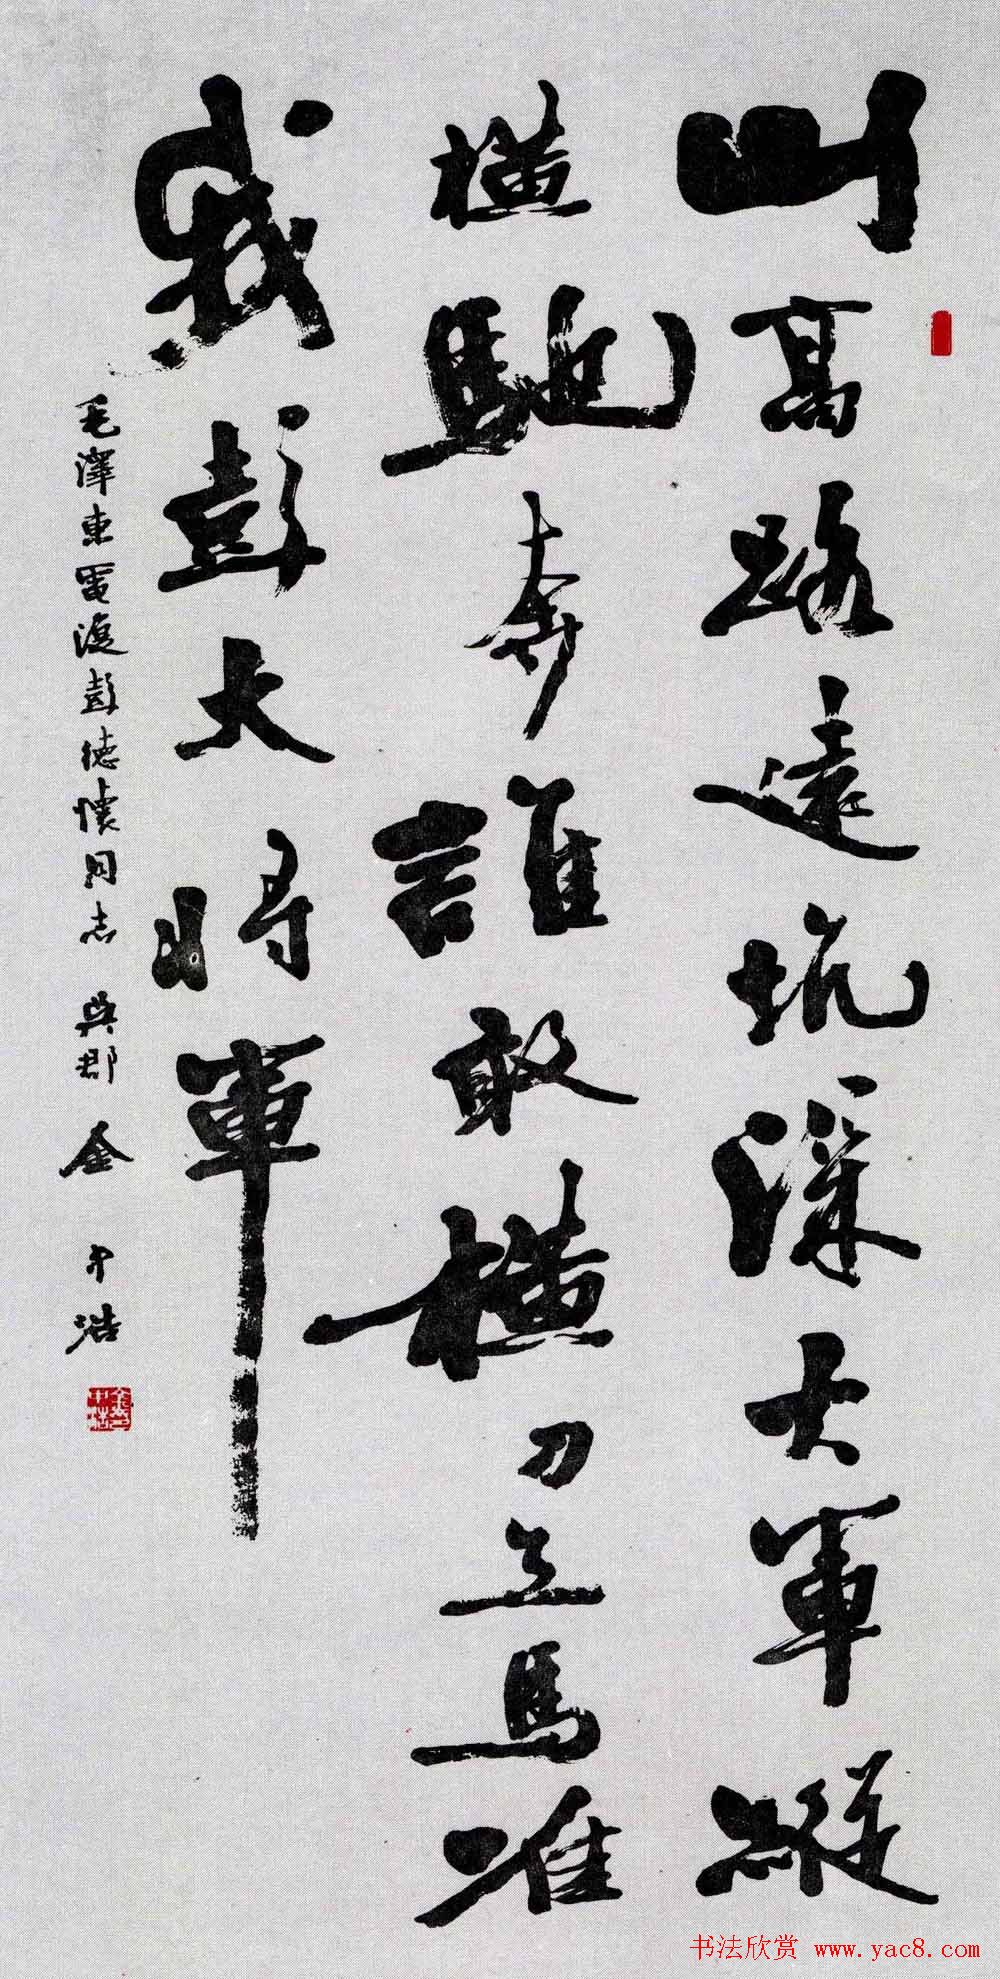 山高路遠坑深大軍縱
橫馳奔誰敢橫刀立馬唯
我彭大將軍
毛澤東電復彭德懷同志 吳郡 金中浩
书法欣赏 www.yac8.com